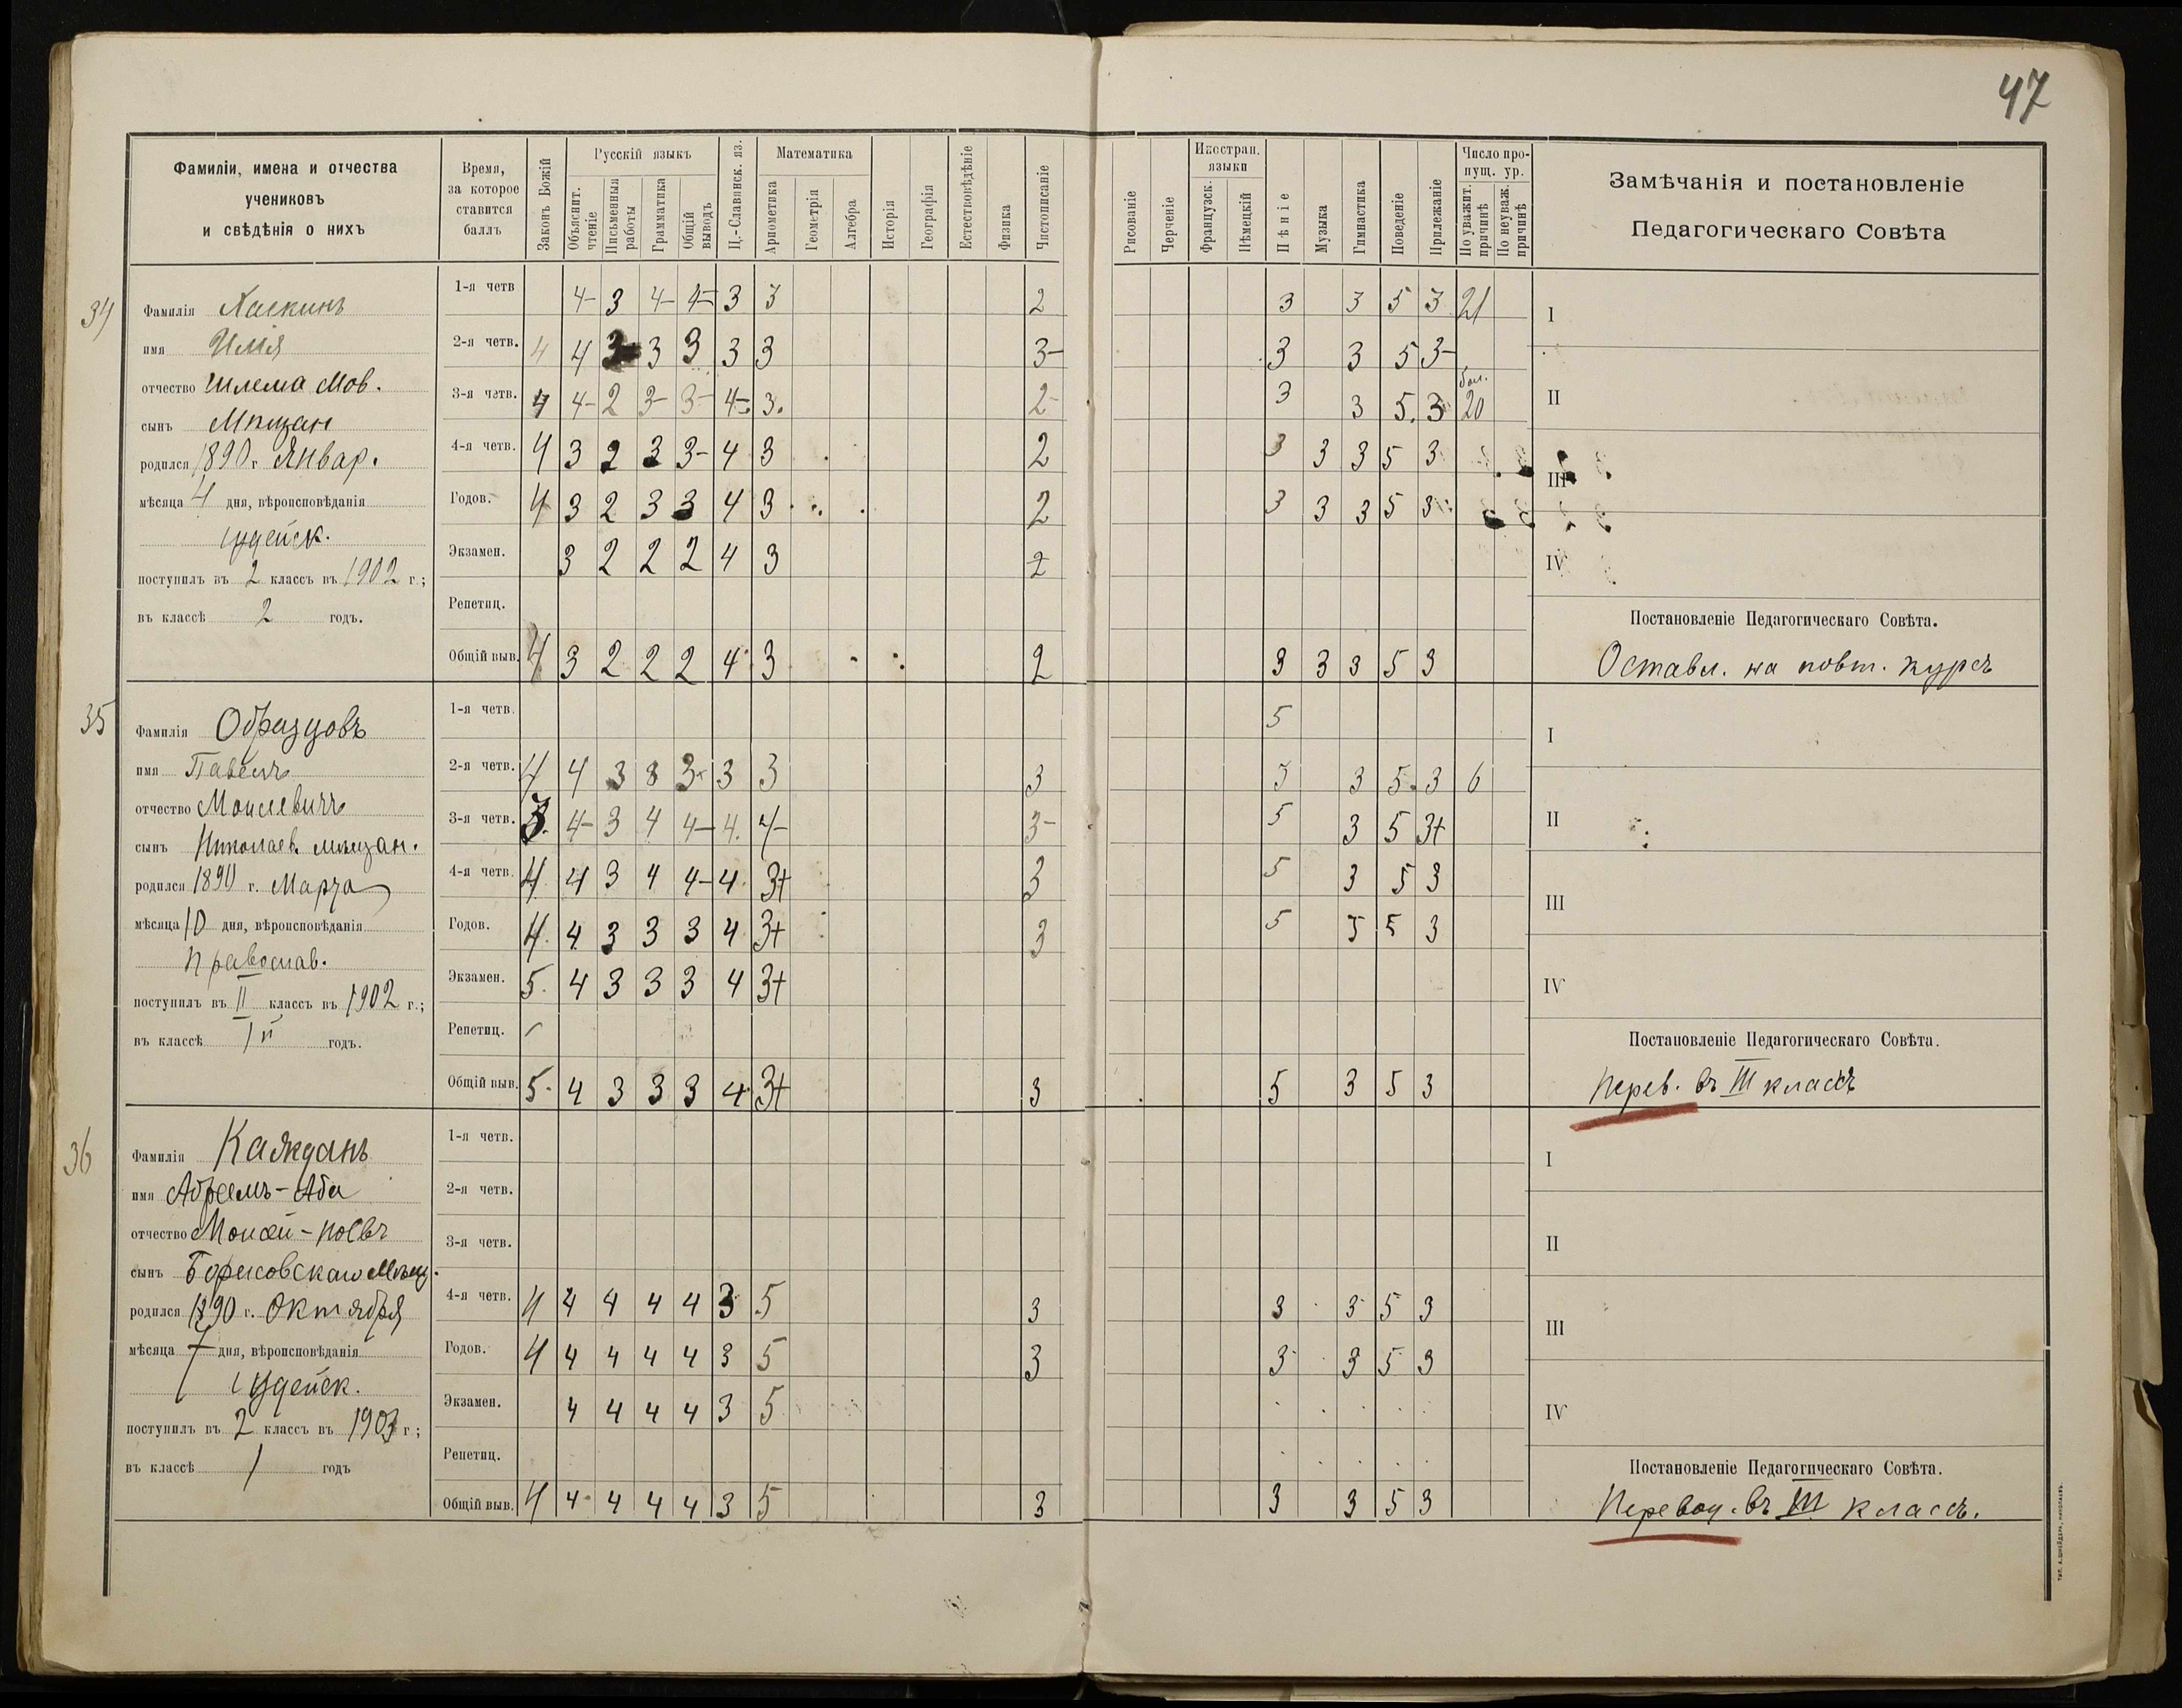 47
Фамиліи, имена и отчества
учениковъ
и свѣдѣнія о нихъ
Время,
за которое
ставится
баллъ
Законъ Божій
Русскій языкъ
Объяснит. чтеніе
Письменныя работы
Грамматика
Общій выводъ
Ц.-Славянск. яз.
Математика
Ариѳметика
Геометрія
Алгебра
Исторія
Географія
Естествовѣдѣніе
Физика
Чистописаніе
Рисованіе
Черченіе
Иностран.
языки
Французск.
Нѣмецкій
Пѣніе
Музыка
Гимнастика
Поведеніе
Прилежаніе
Число про-
пущ. ур.
По уважит. причинѣ
По неуваж. причинѣ
Замѣчанія и постановленіе
Педагогическаго Совѣта
34
Фамилія Хаскинъ
имя Илія
отчество Шлема Мов.
сынъ Мѣщан
родился 1890 г. Январ.
мѣсяца 4 дня, вѣроисповѣданія
іудейск.
поступилъ въ 2 классъ въ 1902 г.;
въ классѣ 2 годъ.
1-я четв 4- 3 4- 4- 3 3 2 3 3 5 3 21
2-я четв. 4 4 3 3 3 3 3 3- 3 3 5 3-
3-я четв. 4 4- 2 3- 3- 4- 3. 2- 3 3 5. 3 бол. 20
4-я четв. 4 3 2 3 3- 4 3 2 3 3 3 5 3
Годов. 4 3 2 3 3 4 3 2 3 3 3 5 3
Экзамен. 3 2 2 2 4 3 2
Репетиц.
Общій выв. 4 3 2 2 2 4 3 2 3 3 3 5 3
I
II
III
IV
Постановленіе Педагогическаго Совѣта.
Оставл. на повт. курсъ
35
Фамилія Образцовъ
имя Павелъ
отчество Моисеевичъ
сынъ Николаев. мѣщан.
родился 1890 г. Марта
мѣсяца 10 дня, вѣроисповѣданія
православ.
поступилъ въ II классъ въ 1902 г.;
въ классѣ I й годъ.
1-я четв. 5
2-я четв. 4 4 3 3 3- 3 3 3 3 3 5. 3 6
3-я четв. 3. 4- 3 4 4- 4. 4- 3- 5 3 5 3+
4-я четв. 4. 4 3 4 4- 4. 3+ 3 5 3 5 3
Годов. 4. 4 3 3 3 4 3+ 3 5 3 5 3
Экзамен. 5. 4 3 3 3 4 3+
Репетиц.
Общій выв. 5. 4 3 3 3 4 3+ 3 5 3 5 3
I
II
III
IV
Постановленіе Педагогическаго Совѣта.
Перев. въ III классъ
36
Фамилія Кажданъ
имя Абрамъ-Аба
отчество Моисей-
сынъ Борисовскаго Мѣщ.
родился 1890 г. Октября
мѣсяца 7 дня, вѣроисповѣданія
іудейск.
поступилъ въ 2 классъ въ 1903 г;
въ классѣ 1 годъ
1-я четв.
2-я четв.
3-я четв.
4-я четв. 4 4 4 4 4 3 5 3 3 3 5 3
Годов. 4 4 4 4 4 3 5 3 3 3 5 3
Экзамен. 4 4 4 4 3 5
Репетиц.
Общій выв. 4 4 4 4 4 3 5 3 3 3 5 3
I
II
III
IV
Постановленіе Педагогическаго Совѣта.
Перевод. въ III классъ.